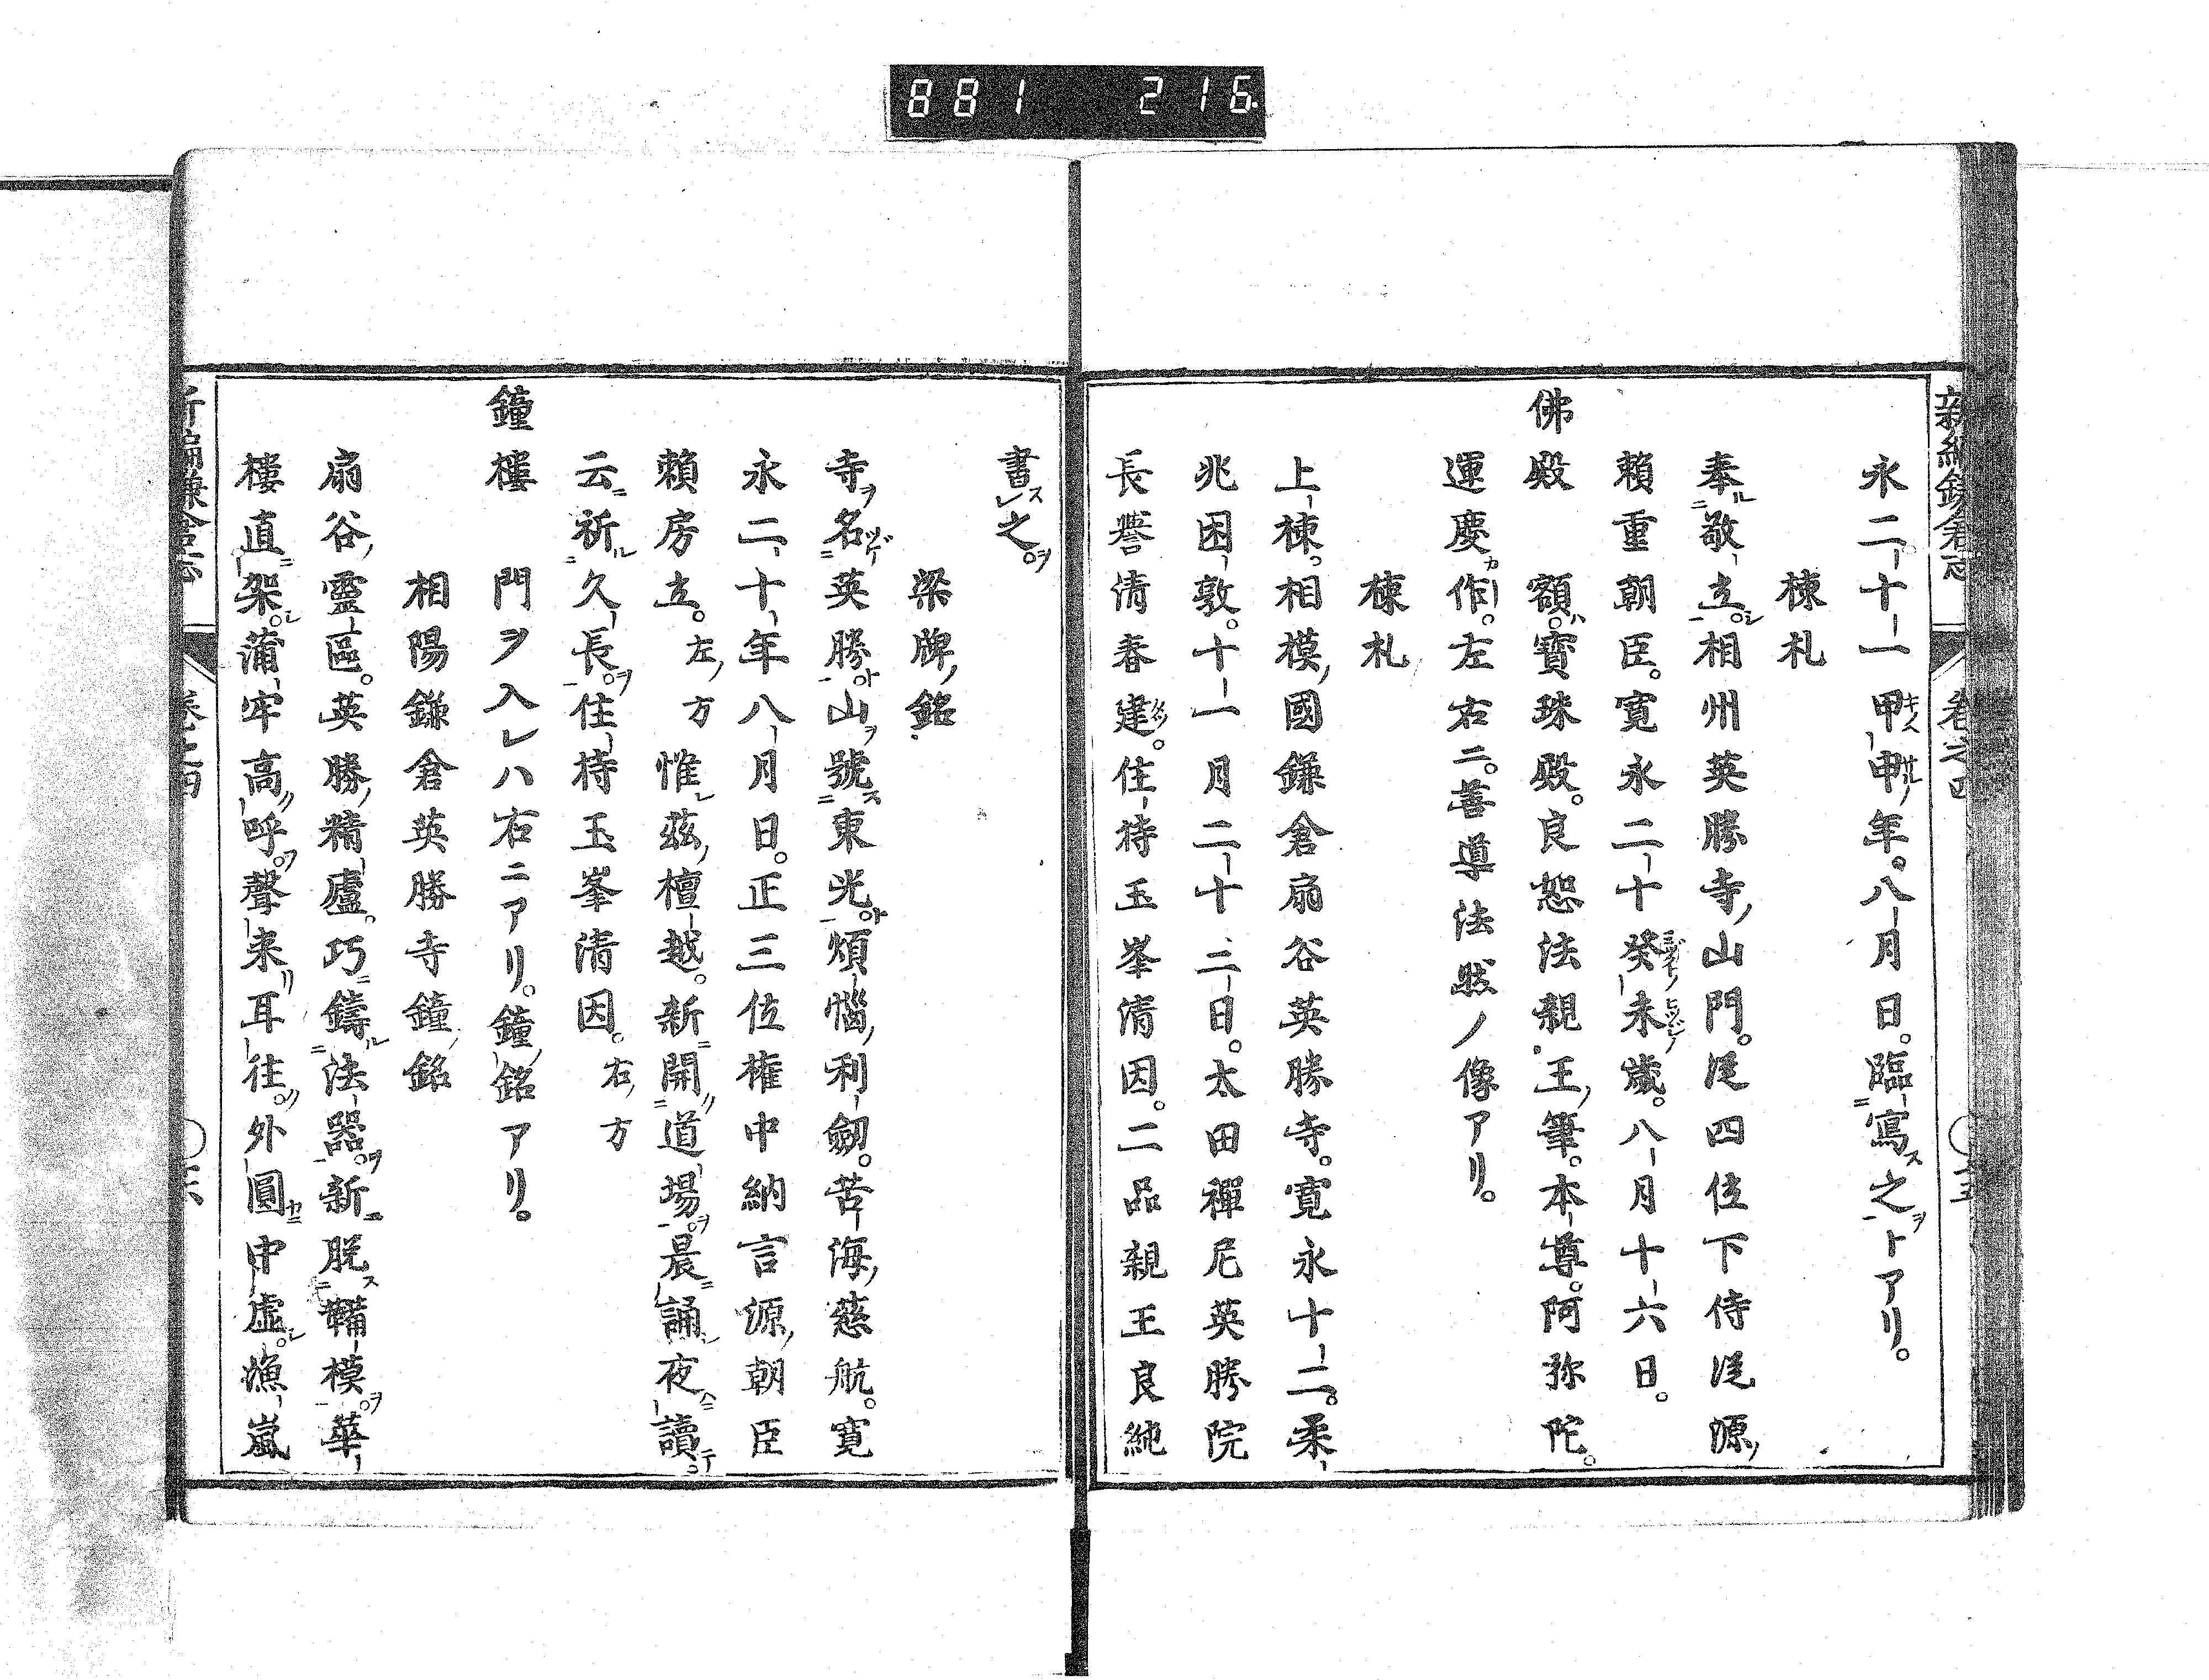 881 216
新編鎌倉志 卷之四
永二十一甲申年。八月日。臨寫之トアリ。
棟札
奉敬立。相州英勝寺山門。従四位下侍従源
賴重朝臣。寛永二十癸未歲。八月十六日。
佛殿 額。寶珠殿。良恕法親王筆。本尊。阿弥陀。
運慶作。左右二。善導法然ノ像アリ。
棟札
上棟。相模國鎌倉扇谷英勝寺。寛永十二。柔
兆困敦。十一月二十三日。太田禪尼英勝院
長譽清春建。住持玉峯清因。二品親王良純
書之。
梁牌銘
寺名英勝山號東光煩惱利劔。苦海慈航。寛
永二十年八月日。正三位權中納言源朝臣
賴房立。左方 惟茲檀越。新開道場晨誦夜讀。
云祈久長。住持玉峯清因。右方
鐘樓 門ヲ入レハ右ニアリ。鐘銘アリ。
相陽鎌倉英勝寺鐘銘
扇谷靈區。英勝精廬。巧鑄法器。新脱鞴模。華
樓直架。蒲牢高呼。聲来耳往。外圓中虛。漁嵐
新編鎌倉志 卷之四